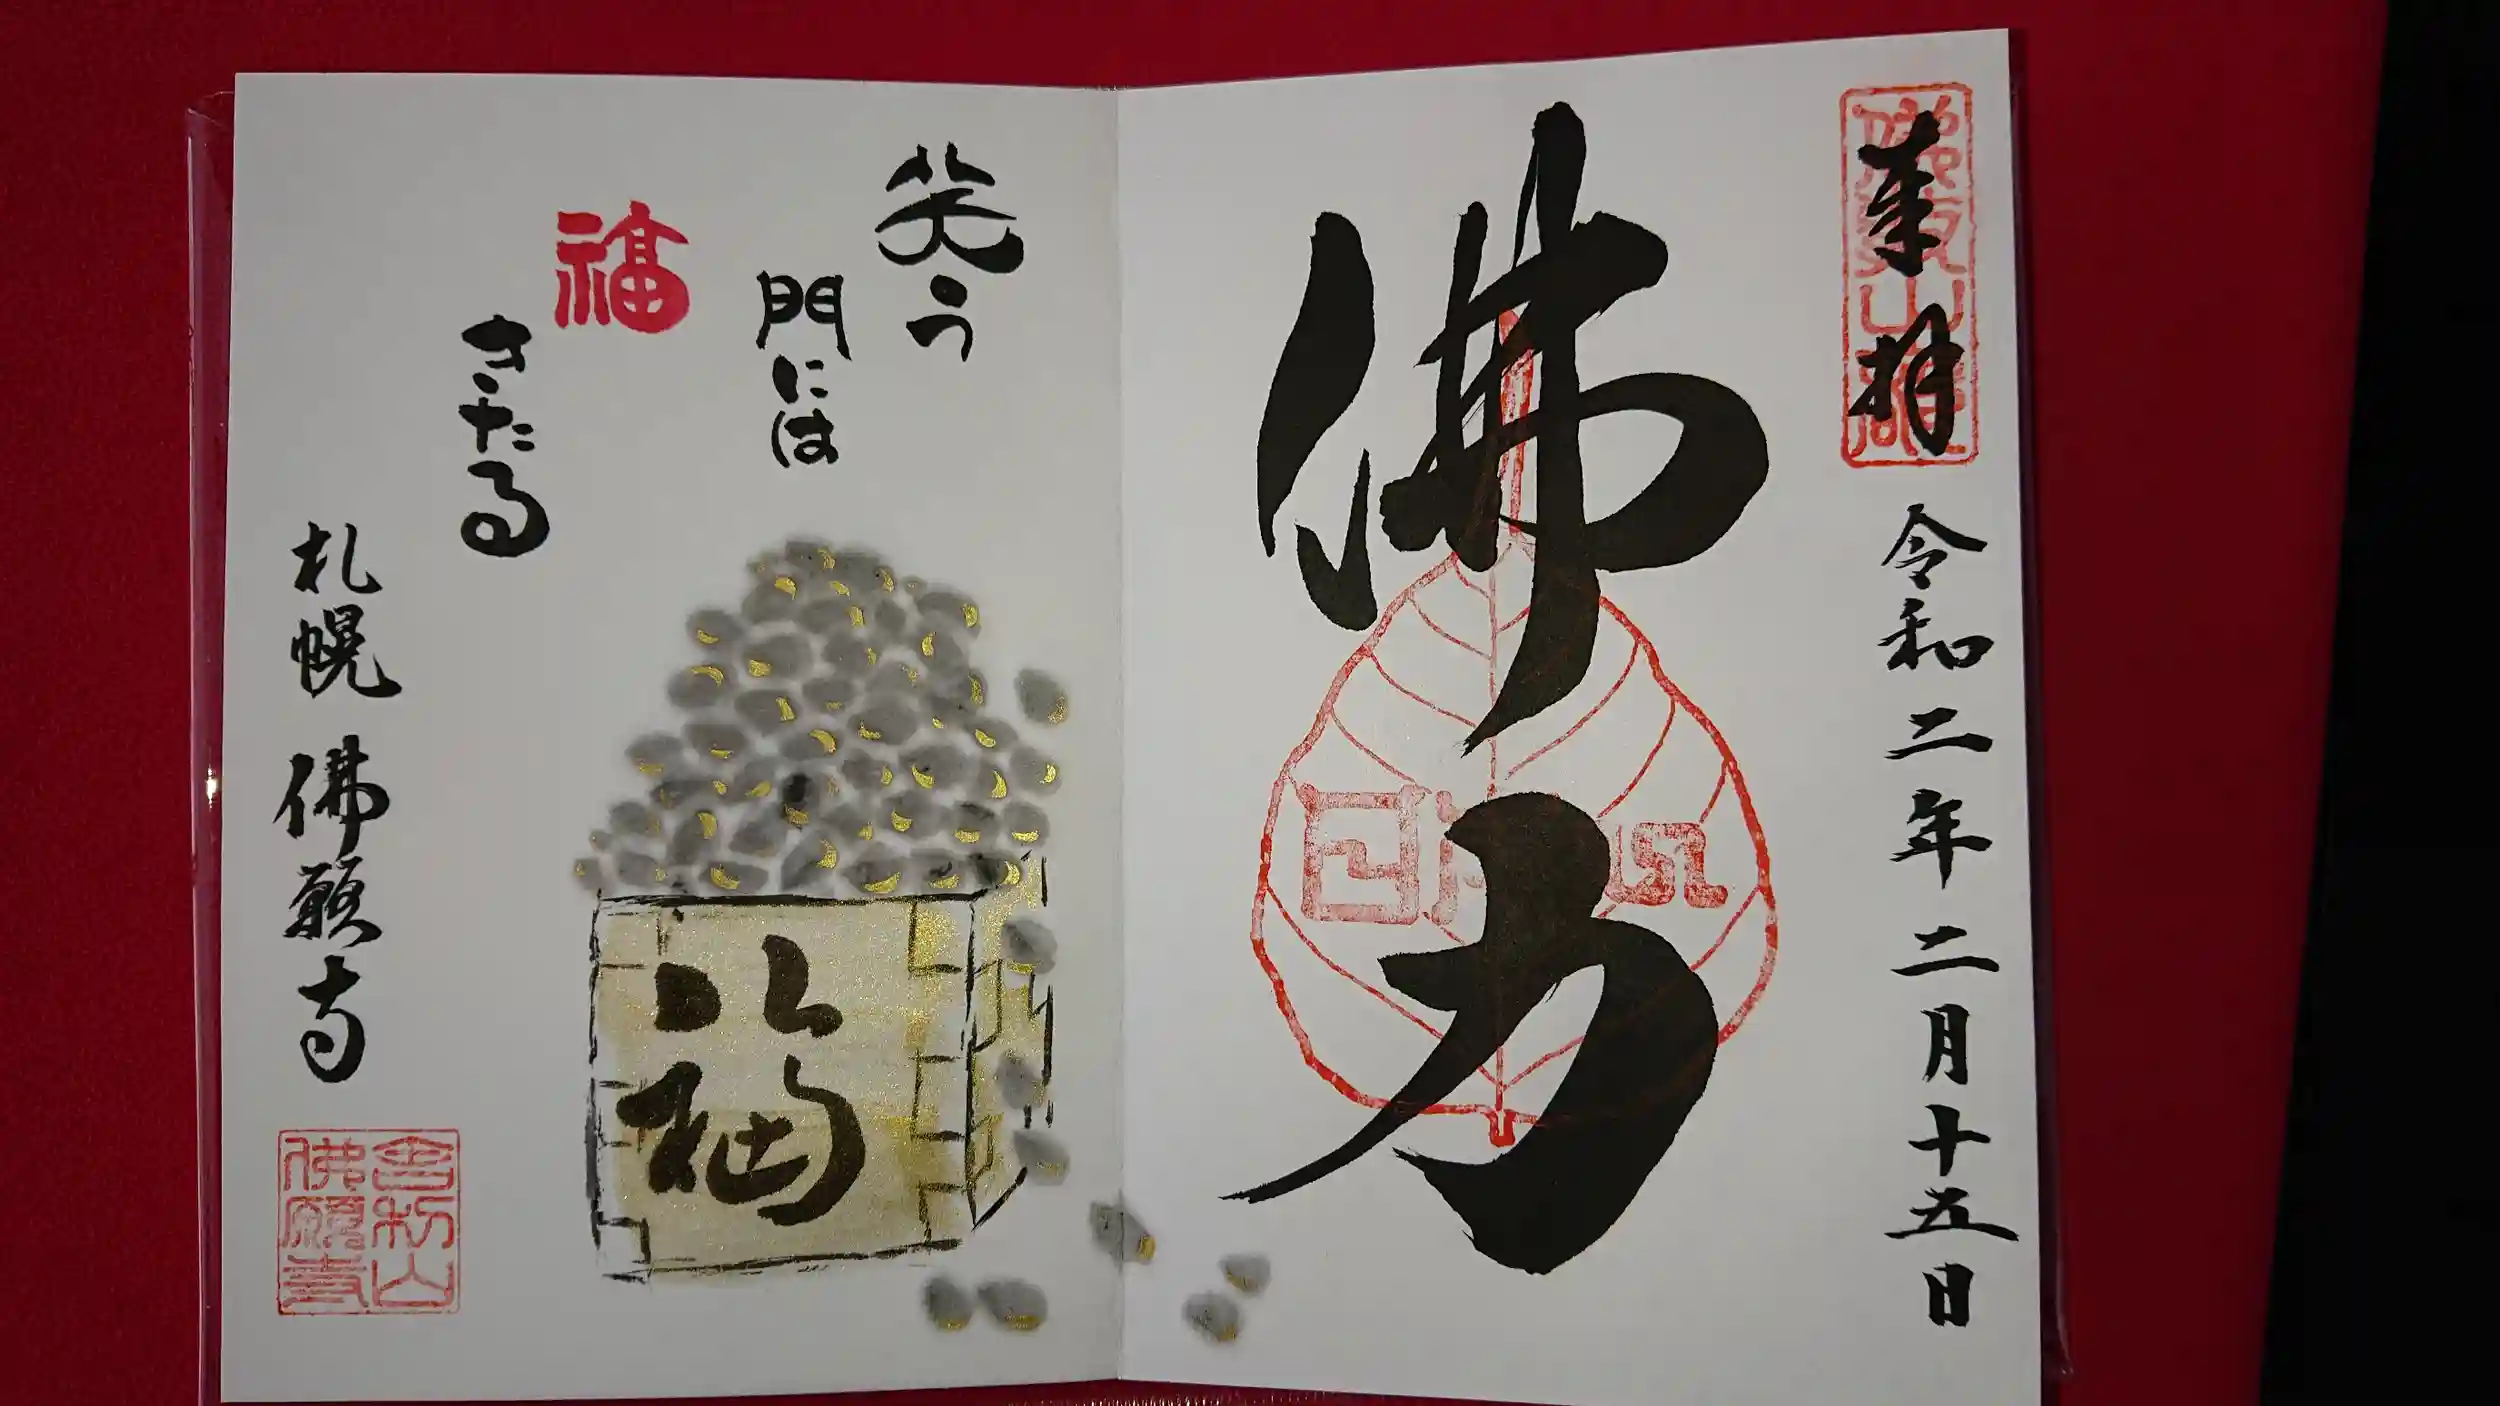 奉拝
令和二年二月十五日
佛力
笑う
門には
福
きたる
福
札幌 佛願寺
舎利山
佛願寺